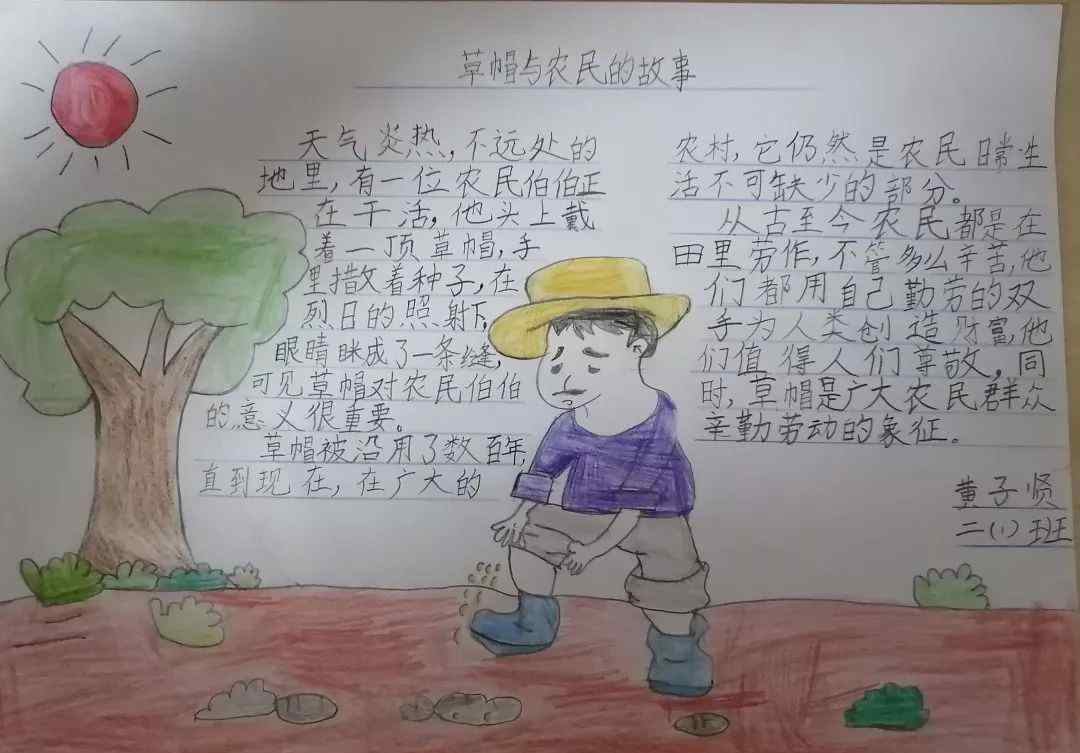 草帽与农民的故事
天气炎热,不远处的
地里,有一位农民伯伯正
在干活,他头上戴
着一顶草帽,手
里撒着种子,在
烈日的照射下,
眼睛眯成了一条缝,
可见草帽对农民伯伯
的意义很重要。
草帽被沿用了数百年,
直到现在,在广大的
农村,它仍然是农民日常生
活不可缺少的部分。
从古至今农民都是在
田里劳作,不管多么辛苦,他
们都用自己勤劳的双
手为人类创造财富,他
们值得人们尊敬。同
时,草帽是广大农民群众
辛勤劳动的象征。
黄子贤
二(1)班